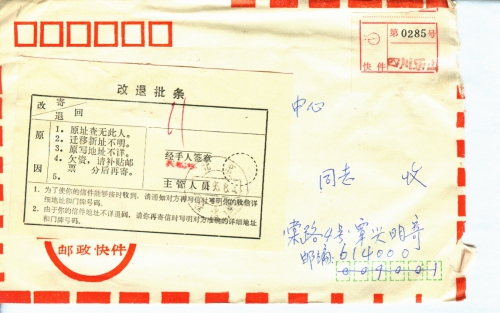 第0285号
快件
改退批条
改
寄
退
回
原
因
1. 原址查无此人。
2. 迁移新址不明。
3. 原写地址不详。
4. 欠资,请补贴邮
票 分后再寄。
5.
经手人签章
主管人员
1. 为了使你的信件能够按时收到,请通知对方再写信时写明你的收信详
细地址和门牌号码。
2. 由于你的信件地址不详退回,请你再寄信时写明对方准确的详细地址
和门牌号码。
邮政快件
中心
同志 收
邮编: 614000